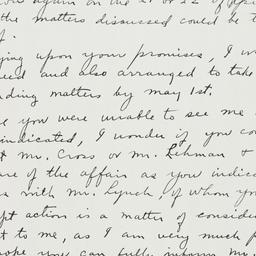 again on the 21 or 22 of
the matters discussed could be
upon your promises, I
and also arranged to take
matters by may 1st.
you were unable to see me
indicated, I wonder if you
Mr. Cross or Mr. Lehman +
of the affair as you
with Mr. Lynch, of whom
action is a matter of
to me, as I am very much
you can fully inform Mr.